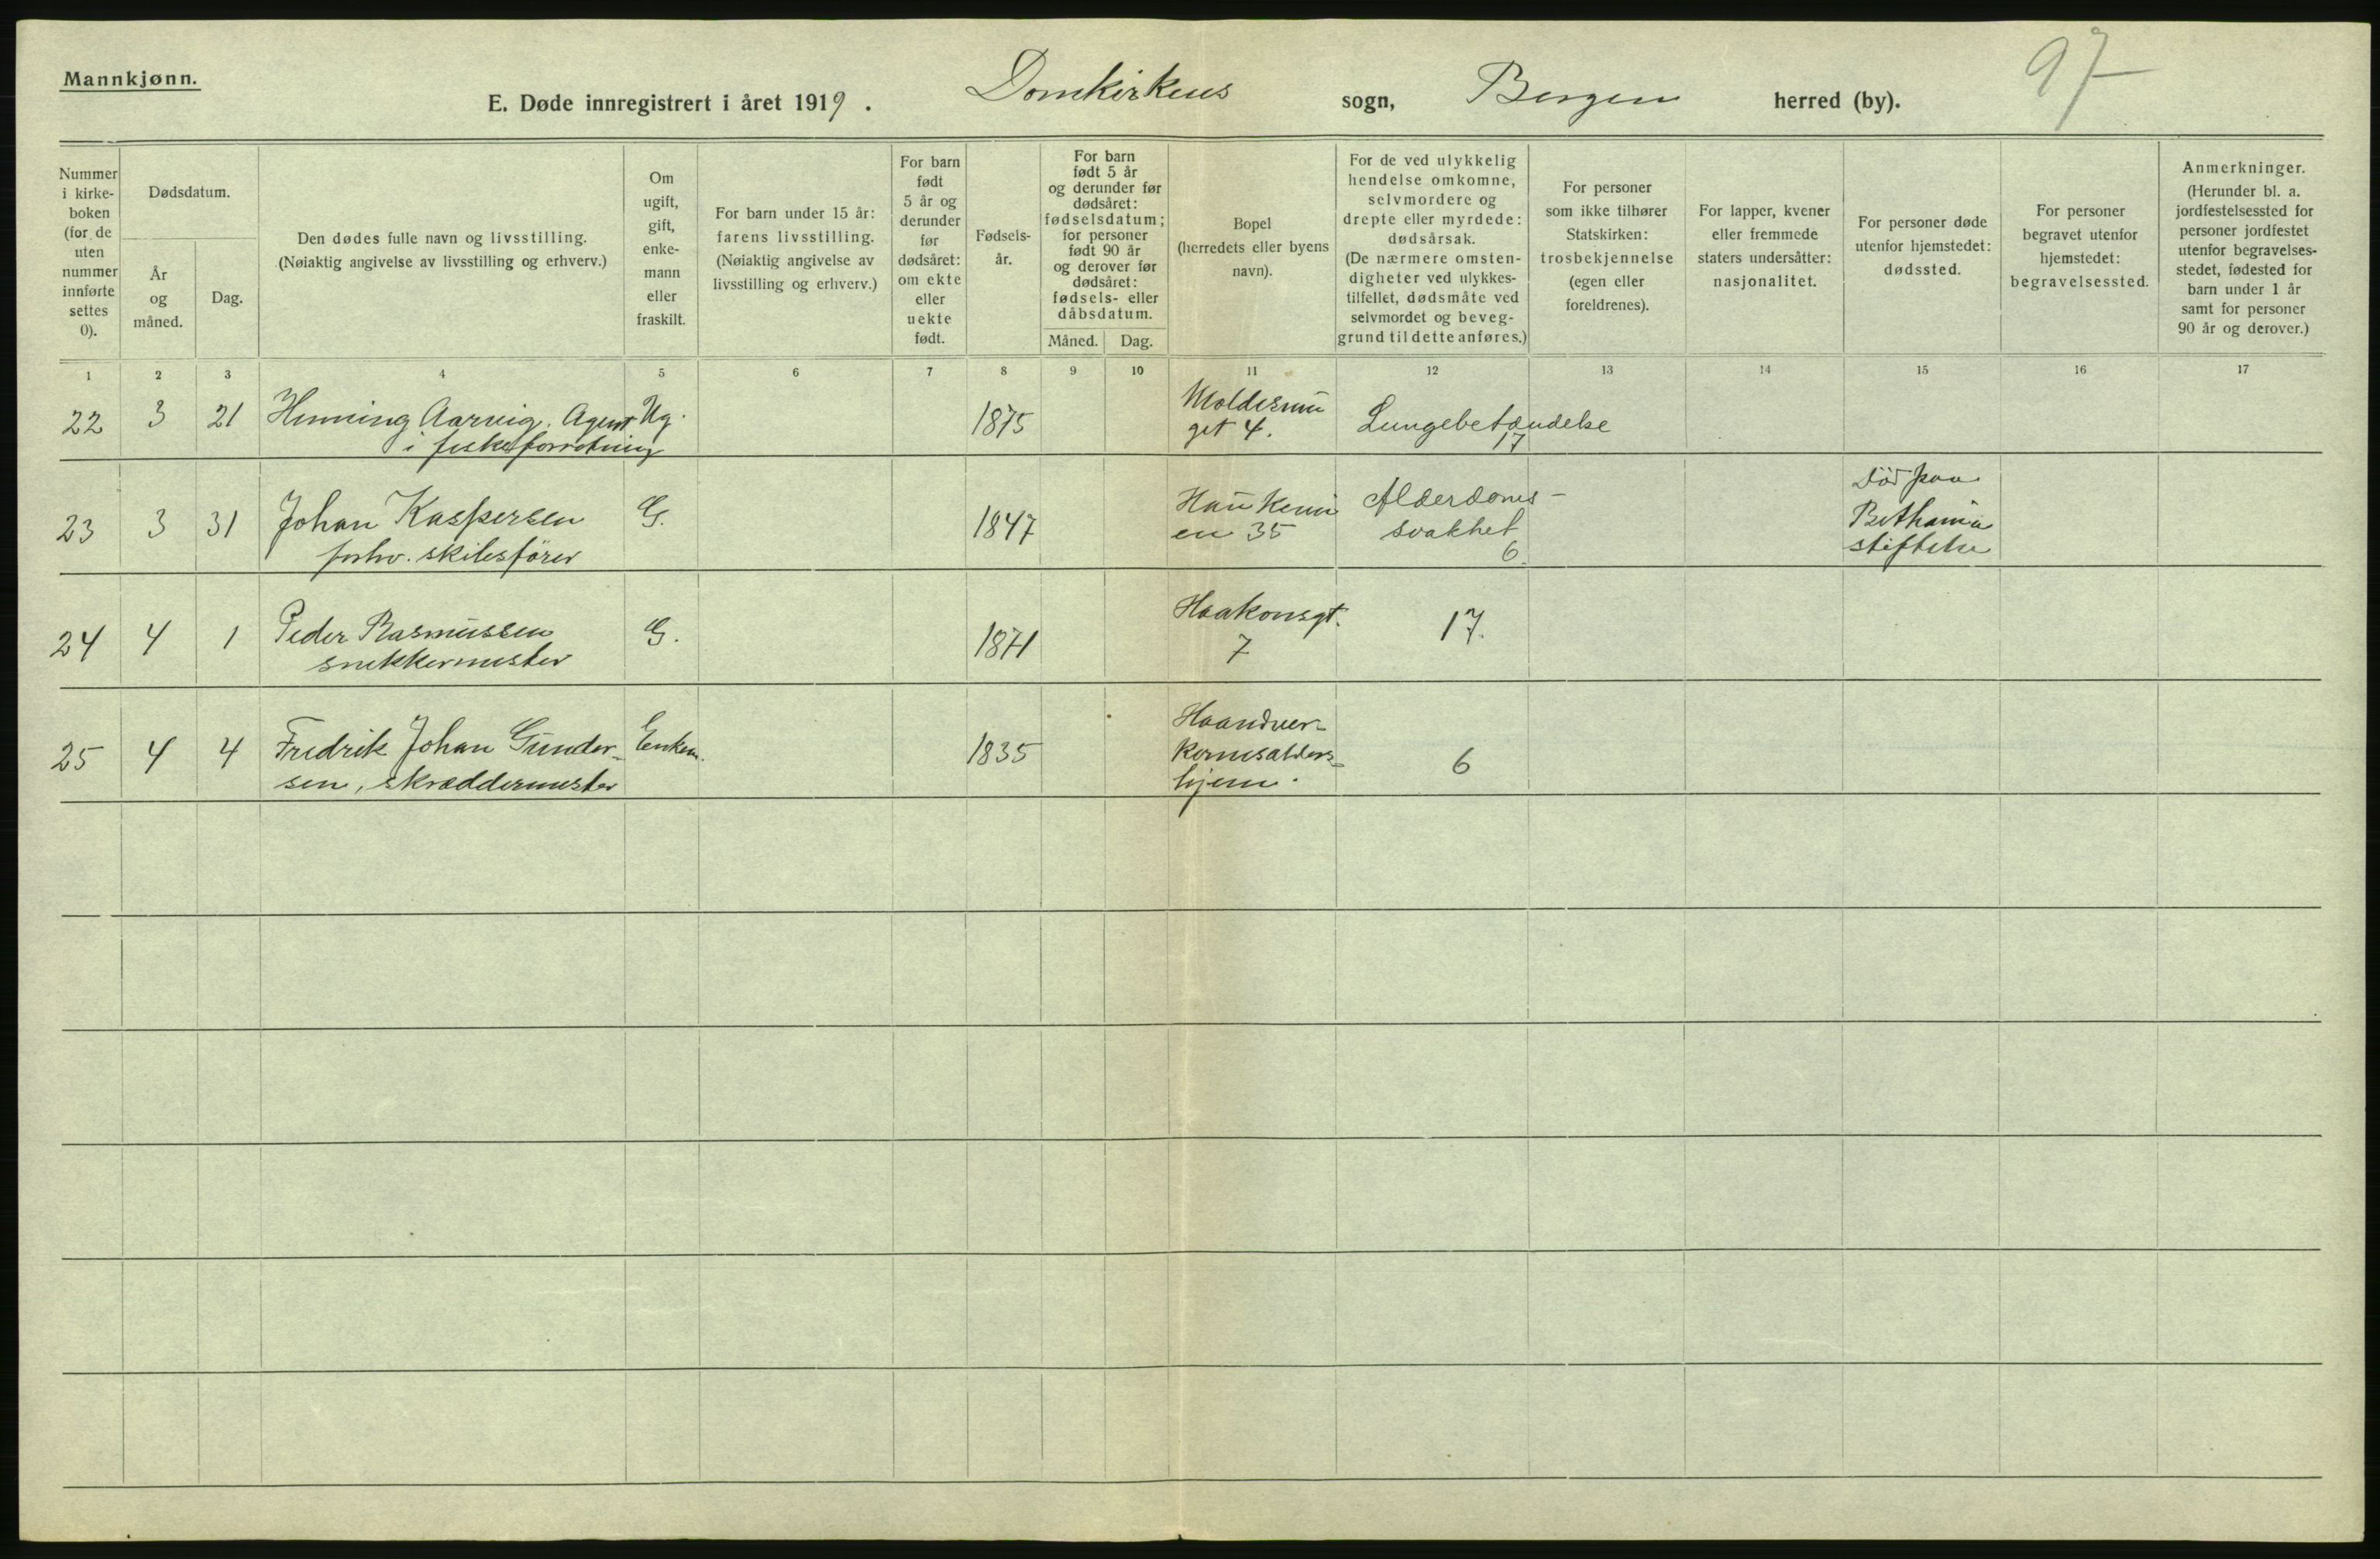 Mannkjønn.
E. Døde innregistrert i året 1919. Domkirkens sogn, Bergen herred (by).
97
Nummer
i kirke-
boken
(for de
uten
nummer
innførte
settes
0).
Dødsdatum.
År
og
måned.
Dag.
Den dødes fulle navn og livsstilling.
(Nøiaktig angivelse av livsstilling og erhverv.)
Om
ugift,
gift,
enke-
mann
eller
fraskilt.
For barn under 15 år:
farens livsstilling.
(Nøiaktig angivelse av
livsstilling og erhverv.)
For barn
født
5 år og
derunder
før
dødsåret:
om ekte
eller
uekte
født.
Fødsels-
år.
For barn
født 5 år
og derunder før
dødsåret:
fødselsdatum;
for personer
født 90 år
og derover før
dødsåret:
fødsels- eller
dåbsdatum.
Måned. Dag.
Bopel
(herredets eller byens
navn).
For de ved ulykkelig
hendelse omkomne,
selvmordere og
drepte eller myrdede:
dødsårsak.
(De nærmere omsten-
digheter ved ulykkes-
tilfellet, dødsmåte ved
selvmordet og beveg-
grund til dette anføres.)
For personer
som ikke tilhører
Statskirken:
trosbekjennelse
(egen eller
foreldrenes).
For lapper, kvener
eller fremmede
staters undersåtter:
nasjonalitet.
For personer døde
utenfor hjemstedet:
dødssted.
For personer
begravet utenfor
hjemstedet:
begravelsessted.
Anmerkninger.
(Herunder bl. a.
jordfestelsessted for
personer jordfestet
utenfor begravelses-
stedet, fødested for
barn under 1 år
samt for personer
90 år og derover.)
1 2 3 4 5 6 7 8 9 10 11 12 13 14 15 16 17
22 3 21 Henning Aarvig. Agent Ug. 1875 Lungebetændelse
get 4. 17
i
23 3 31 Johan Kaspersen G. 1847 Alderdoms-
forhv. skibsförer en 35 svakhet
6.
Död paa
Bethania
stiftelse
24 4 1 Peder Rasmussen G. 1871 Haakonsgt. 17.
snekkermester 7
25 4 4 Fredrik Johan Gunder- Enkem. 1835 Haandver-
sen, skræddermester kernesalders-
hjem. 6